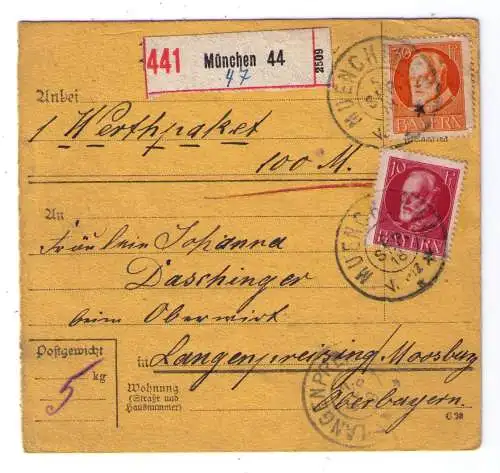 441 München 44
47
2509
30 Pf.
BAYERN
Anbei
1 Werthpaket
100 M.
10 Pf.
BAYERN
MUENCH
MUENCH
An
Fräulein Johanna
Daschinger
beim Oberwirt
in Langenpreising / Moosburg
Oberbayern.
Postgewicht
5 kg
Wohnung
(Straße und
Hausnummer)
LANGENPR